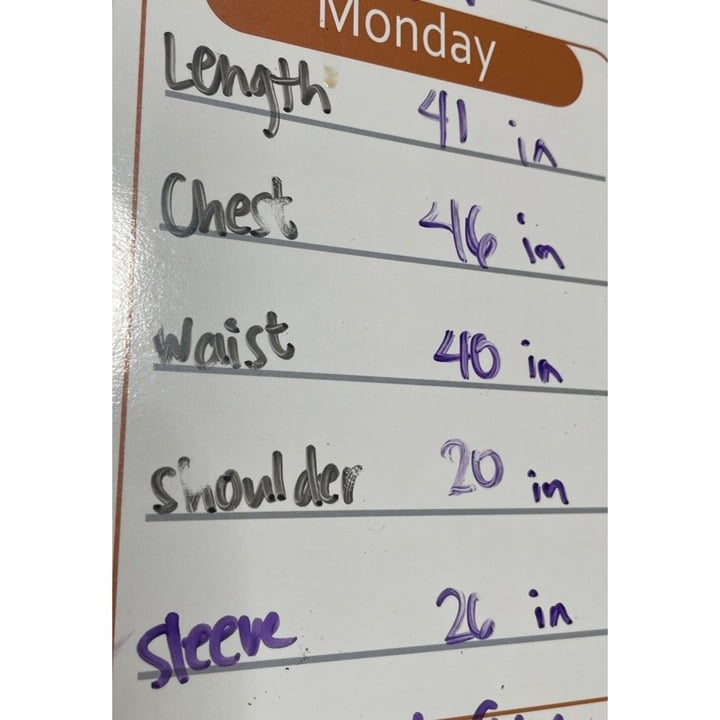 Monday
Length 41 in
Chest 46 in
Waist 40 in
Shoulder 20 in
Sleeve 26 in